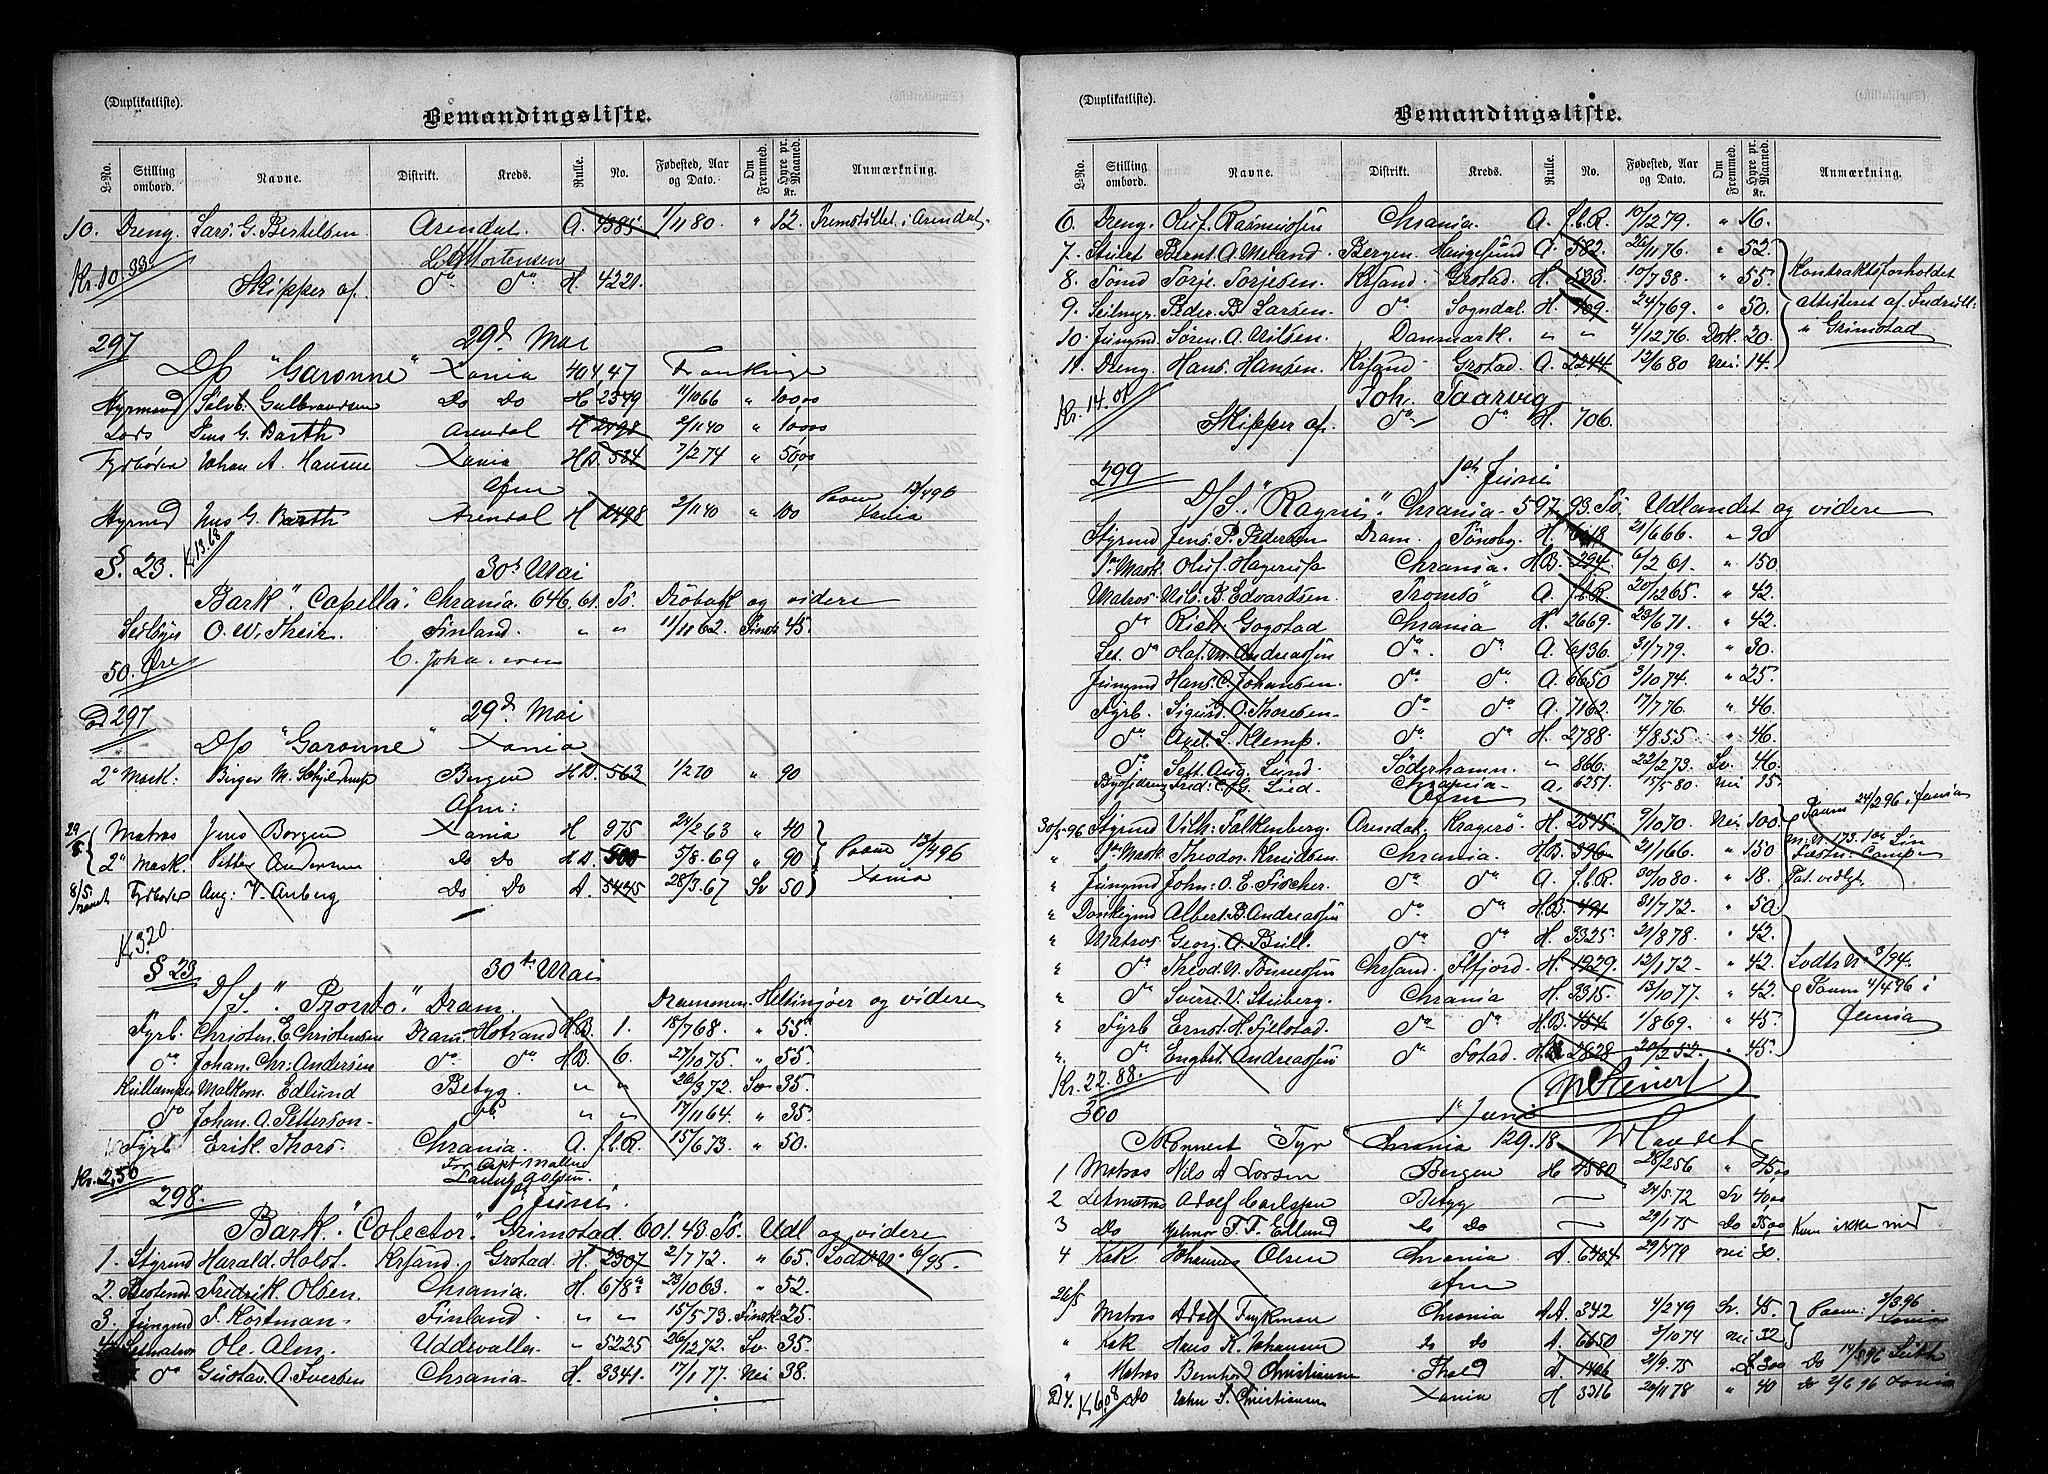 (Duplikatliste).
Bemandingsliste.
L-No. Stilling ombord. Navne. Distrikt. Kreds. Rulle. No. Fødested, Aar og Dato. Om Fremmed. Hyre pr. Maaned. Kr. Anmærkning.
10. Dreng. Lars G. Bertelsen. Arendal. A. 4385 1/11 80 " 12. Fremstillet i Arendal.
Kr. 10.33 Mortensen
Skipper af. do do H. 4221.
297 29d Mai
D/s "Garonne" Xania 404,47
Styrmand Gulbrandsen Do Do H 2349 1/10 66 " 100,00
Lods Jens G. Barth Arendal H 2498 2/11 40 " 100,00
Fyrbøder Johan A. Hansen Xania HB. 584 7/2 74 " 50,00
Afm
Styrmd Jens G. Barth Arendal H 2498 2/11 40 " 100 Paam 13/4 96 Xania
§. 23. K. 13.68 30d Mai
Bark "Capella" Chrania. 646.61. To. Drøbak og videre
O. W. Their. Finland. " " 11/11 62. Finsk 45.
50. Øre C. Johansen
ad 297 29d. Mai
D/s "Garonne" Xania
2' Mask: Birger M. Schjelderup Bergen HB. 563 1/2 70 " 90
Afm:
29/5 Matros Jens Borgen Xania H 975 24/2 63 " 40
2' Mask. Petter Andersen Do Do HB. 500 5/8. 69 " 90 Paam 13/4 96
8/5 Fyrbøder Aug: V. Arberg Do Do A. 5445 28/3. 67 Sv 50 Xania
K. 3.20.
§ 23 30te Mai
D/S. "Pronto" Dram. Drammen. Helsingøer og videre
Fyrb. Christen E. Christensen Dram. Hotrand H.B. 1. 18/7 68. " 55.
do Johan. Chr. Andersen do do HB. 6. 27/10 75. " 55.
Kullemper Malkom. Edlund Betyg " " 26/9 72. Sv 35.
do Johan. A. Petterson do " " 17/11 64. " 35.
Fyrb. Erik Thors. Chrania. A. f.b.R. 15/6 73. " 50.
Kr. 2,50 For Capt Møller
298. 1st Juni.
Bark "Colector" Grimstad 601.43 To. Udl og videre
1. Styrmd Harald Holst. Krsand. Grstad H. 2307 2/7 72. " 65. Lods No 6/95.
2. Bestmd Fredrik Olsen. Chrania. H. 678a 23/10 63. " 52.
3. Jungmd F. Kortman. Finland. " " 15/5 73. Finsk 25.
4. Letmatros Ole Alm. Uddevalla. " 5225 26/12 72. Sv. 35.
do Gustav. A. Iversen Chrania. H. 3341. 17/1 77. Nei 38.
(Duplikatliste).
Bemandingsliste.
L-No. Stilling ombord. Navne. Distrikt. Kreds. Rulle. No. Fødested, Aar og Dato. Om Fremmed. Hyre pr. Maaned. Kr. Anmærkning.
6. Dreng. Oluf. Rasmussen Chrania. A. f.b.R. 10/12 79. " 16.
7. Stuert Bernt. A. Meland. Bergen. Haugesund A. 582. 26/11 76. " 52. Kontraktsforholdet
8. Tømd Torje. Torjesen. Krsand. Grstad. H. 533. 10/7 38. " 55. attesteret af Indrull.
9. Seilmgr. Peder. B. Larsen. do Sogndal. H. 169. 24/7 69. " 50. " Grimstad
10. Jungmd Søren. A. Nilsen. Danmark. " " 4/12 76. Dsk. 20.
11. Dreng. Hans. Hansen. Krsand Grstad. A. 2244. 12/6 80 Nei. 14.
Kr. 14.01 Joh. Taarvig
Skipper af. do do H. 706.
299 1st Juni
D/S. "Ragni" Chrania. 597.93. To. Udlandet og videre
Styrmd Jens. P. Pedersen Dram. Tønsbg. H. 1618 21/6 66. " 90
1ste Mask. Oluf. Hagerup Chrania. HB. 294. 6/2 61. " 150
Matros Nils. B. Edvardsen. Tromsø A. f.b.R 20/12 65. " 42.
do Rich. Gogstad Chrania H. 2669. 23/6 71. " 42.
Let. do Olaf. M. Andreassen do do A. 6136. 31/7 79. " 30.
Jungmd Hans. C. Johansen. do do A. 6650 3/10 74. " 25.
Fyrb. Sigurd. O. Thoresen do do A. 7162. 17/7 76. " 46.
do Axel. L. Klemp. do do H. 2788. 4/8 55. " 46.
do Sett. Aug. Lund. Söderhamn. " 866. 22/2 73. Sv. 46.
Fred: C. G. Lied. Chrania. A. 6251. 15/5 80. Nei 15.
Afm
30/5 96 Styrmd Vilh: Falkenberg. Arendal. Kragerø. H. 2515 9/10 70. Nei 100. Paam 24/2 96 i Xania
" 1ste Mask. Theodor Knudsen. Chrania. HB. 396 21/1 66. " 150
" Jungmd John: O. E. Fischer. do do A. f.b.R. 30/10 80. " 18.
" Donkymd Albert. B. Andreassen do do H.B. 491 31/7 72. " 50.
" Matros. Georg. A. Bull. do do H. 3325. 21/8 78. " 42.
" do Theod. N. Tønnessen Chrsand. Flfjord. H. 1929. 12/1 72. " 42. Lods No 3/94.
" do Sverre. V. Stuberg. Chrania H. 3315. 13/10 77. " 42. Paam 4/4 96 i
" Fyrb Ernst. H. Fjelstad. do do H.B. 454. 1/8 69. " 45. Xania
" do Engbrt. Andreassen do Fstad. H. 2828. 20/2 52. " 45.
Kr. 22.88.
300 1st Juni
Skonnert "Tyr" Chrania 129.18. Udlandet
1 Matros Nils A Larsen Bergen H 4580 28/2 56 " 45,00
2 Letmatros Adolf Carlsson Betyg 24/5. 72 Sv 40,00
3 Do Hjelmar F. F. Edlund do do 29/1 75 Do 35,00 Kom ikke med
4 Kok Johannes Olsen Chrania A. 6404 29/4 79 Nei 30.
Afm
26/5 Matros Adolf Frykman Chrania AA. 342 4/2 49 Sv. 45. Paam: 3/3 96. Xania
" Kok Hans K. Johansen do do A. 6650 3/10 74 Nei 32
" Matros Bernhard Christiansen Thold A 1406 21/9. 75 300 Do 14/3 96 Leith
24. K. 6.08 do John S. Christiansen Xania H 3316 20/11 78 " 40 do 2/6 96 Xania